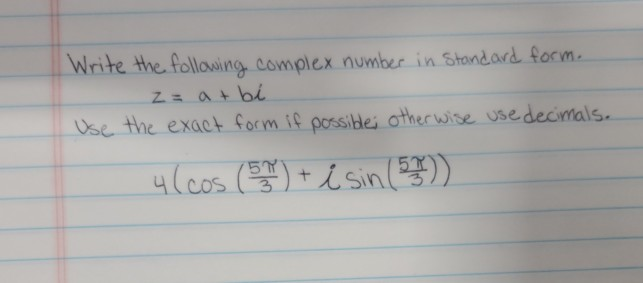 Write the following complex number in standard form.
z = a + bi
Use the exact form if possible; otherwise use decimals.
4(cos(5π/3) + i sin(5π/3))